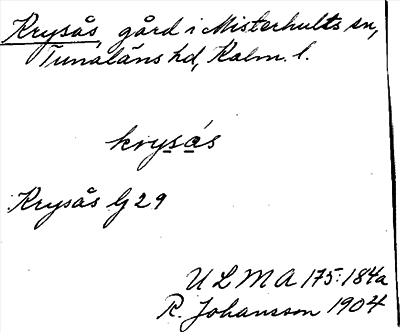 Krysås, gård i Misterhults sn,
Tunaläns hd, Kalm. l.
krysás
Krysås G 29
ULMA 175:184a
R. Johansson 1904